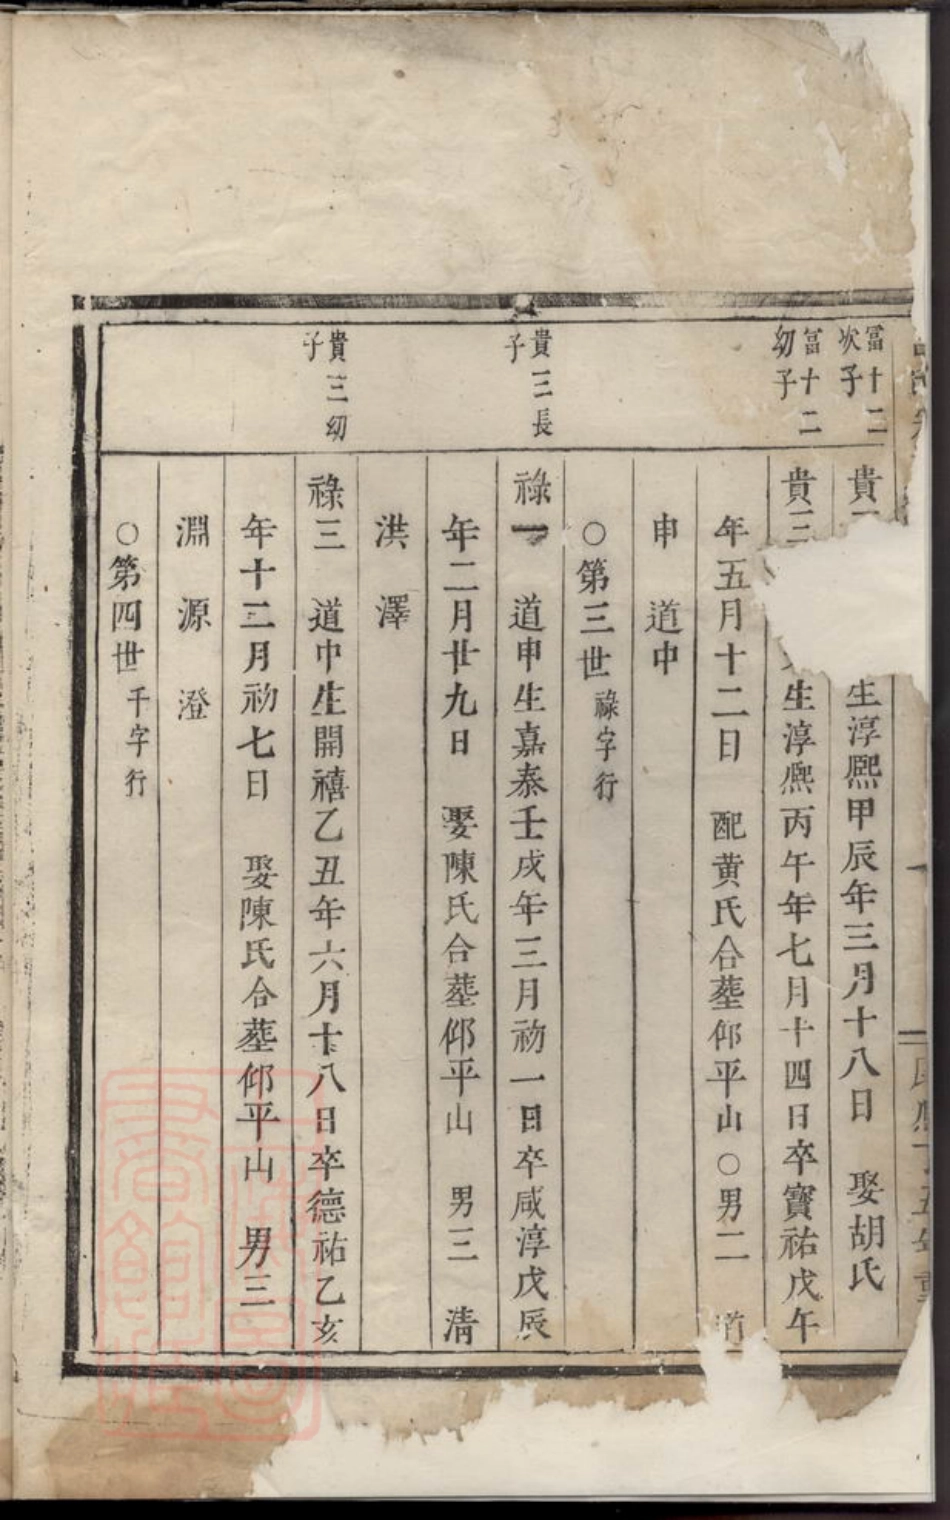 冨十二
次子
貴
生淳熈甲辰年三月十八日 娶胡氏
冨十二
幼子
貴三
生淳熈丙午年七月十四日卒寶祐戊午
年五月十二日 配黄氏合塟仰平山○男二 道
申 道中
○第三世祿字行
貴三長
子
祿一 道申生嘉泰壬戌年三月初一日卒咸淳戊辰
年二月廿九日 娶陳氏合塟仰平山 男三 清
洪 澤
貴三幼
子
祿三 道中生開禧乙丑年六月十八日卒德祐乙亥
年十二月初七日 娶陳氏合塟仰平山 男三
淵 源 澄
○第四世千字行